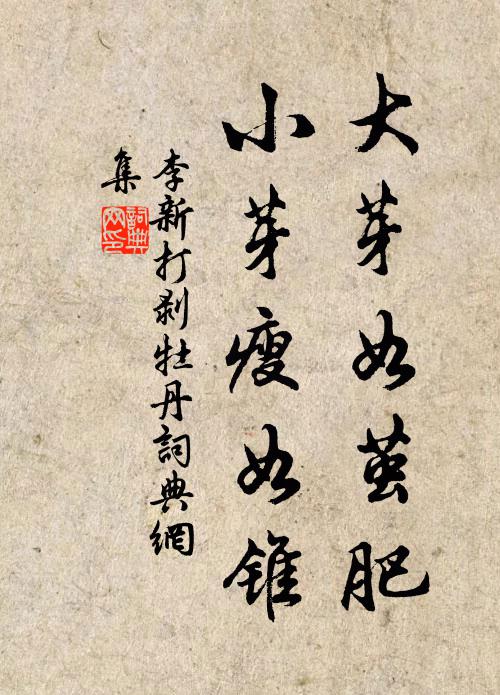 大芽如茧肥
小芽瘦如锥
李新打剥牡丹詞典網
集
詞典
网印